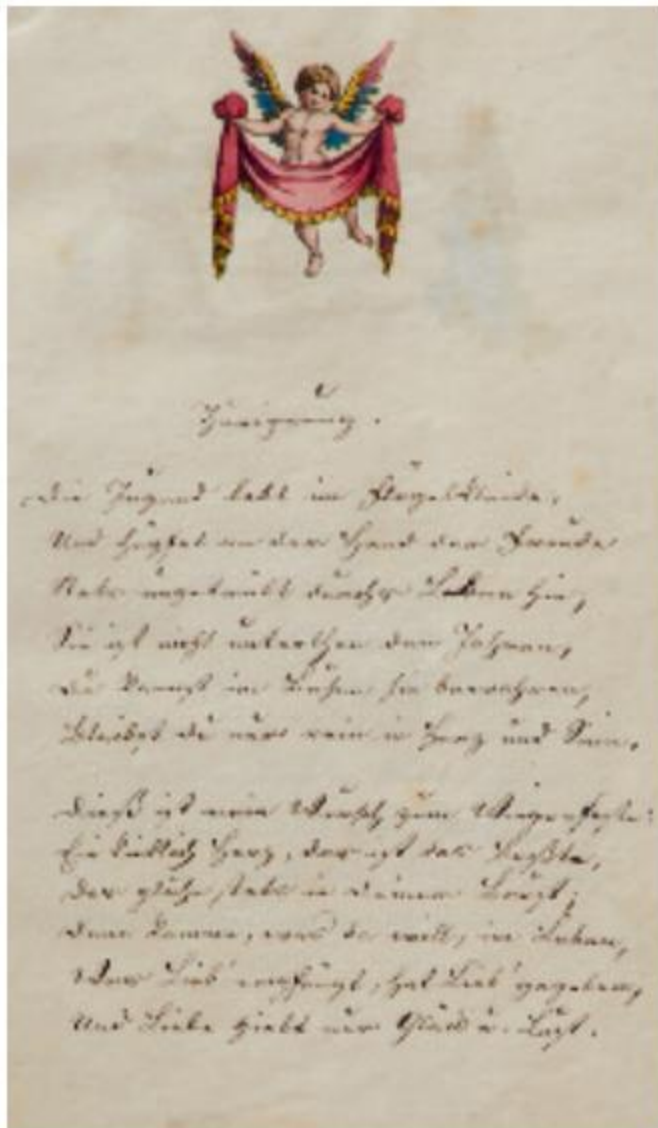 Zueignung.
Die Jugend lebt im Flügelkleide,
Und hüpfet an der Hand der Freude
Stets ungetrübt durchs Leben hin,
Sie ist nicht unterthan den Jahren,
Du kannst im Busen sie bewahren,
Bleibst du nur rein in Herz und Sinn.
Dieß ist mein Wunsch zum Wiegenfeste:
Ein kindlich Herz, das ist das Beßte,
Das glühe stets in Deiner Brust;
Dann komme, was da will, im Leben,
Wer Lieb' empfängt, hat Lieb' gegeben,
Und Liebe giebt nur Glück u. Lust.